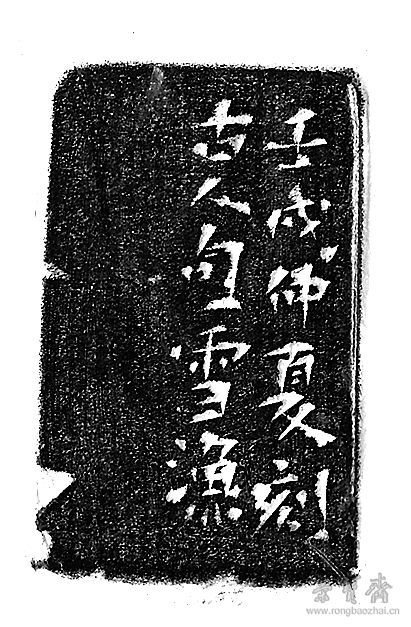 壬戌仲夏刻
古人句雪漁
荣宝斋
www.rongbaozhai.cn